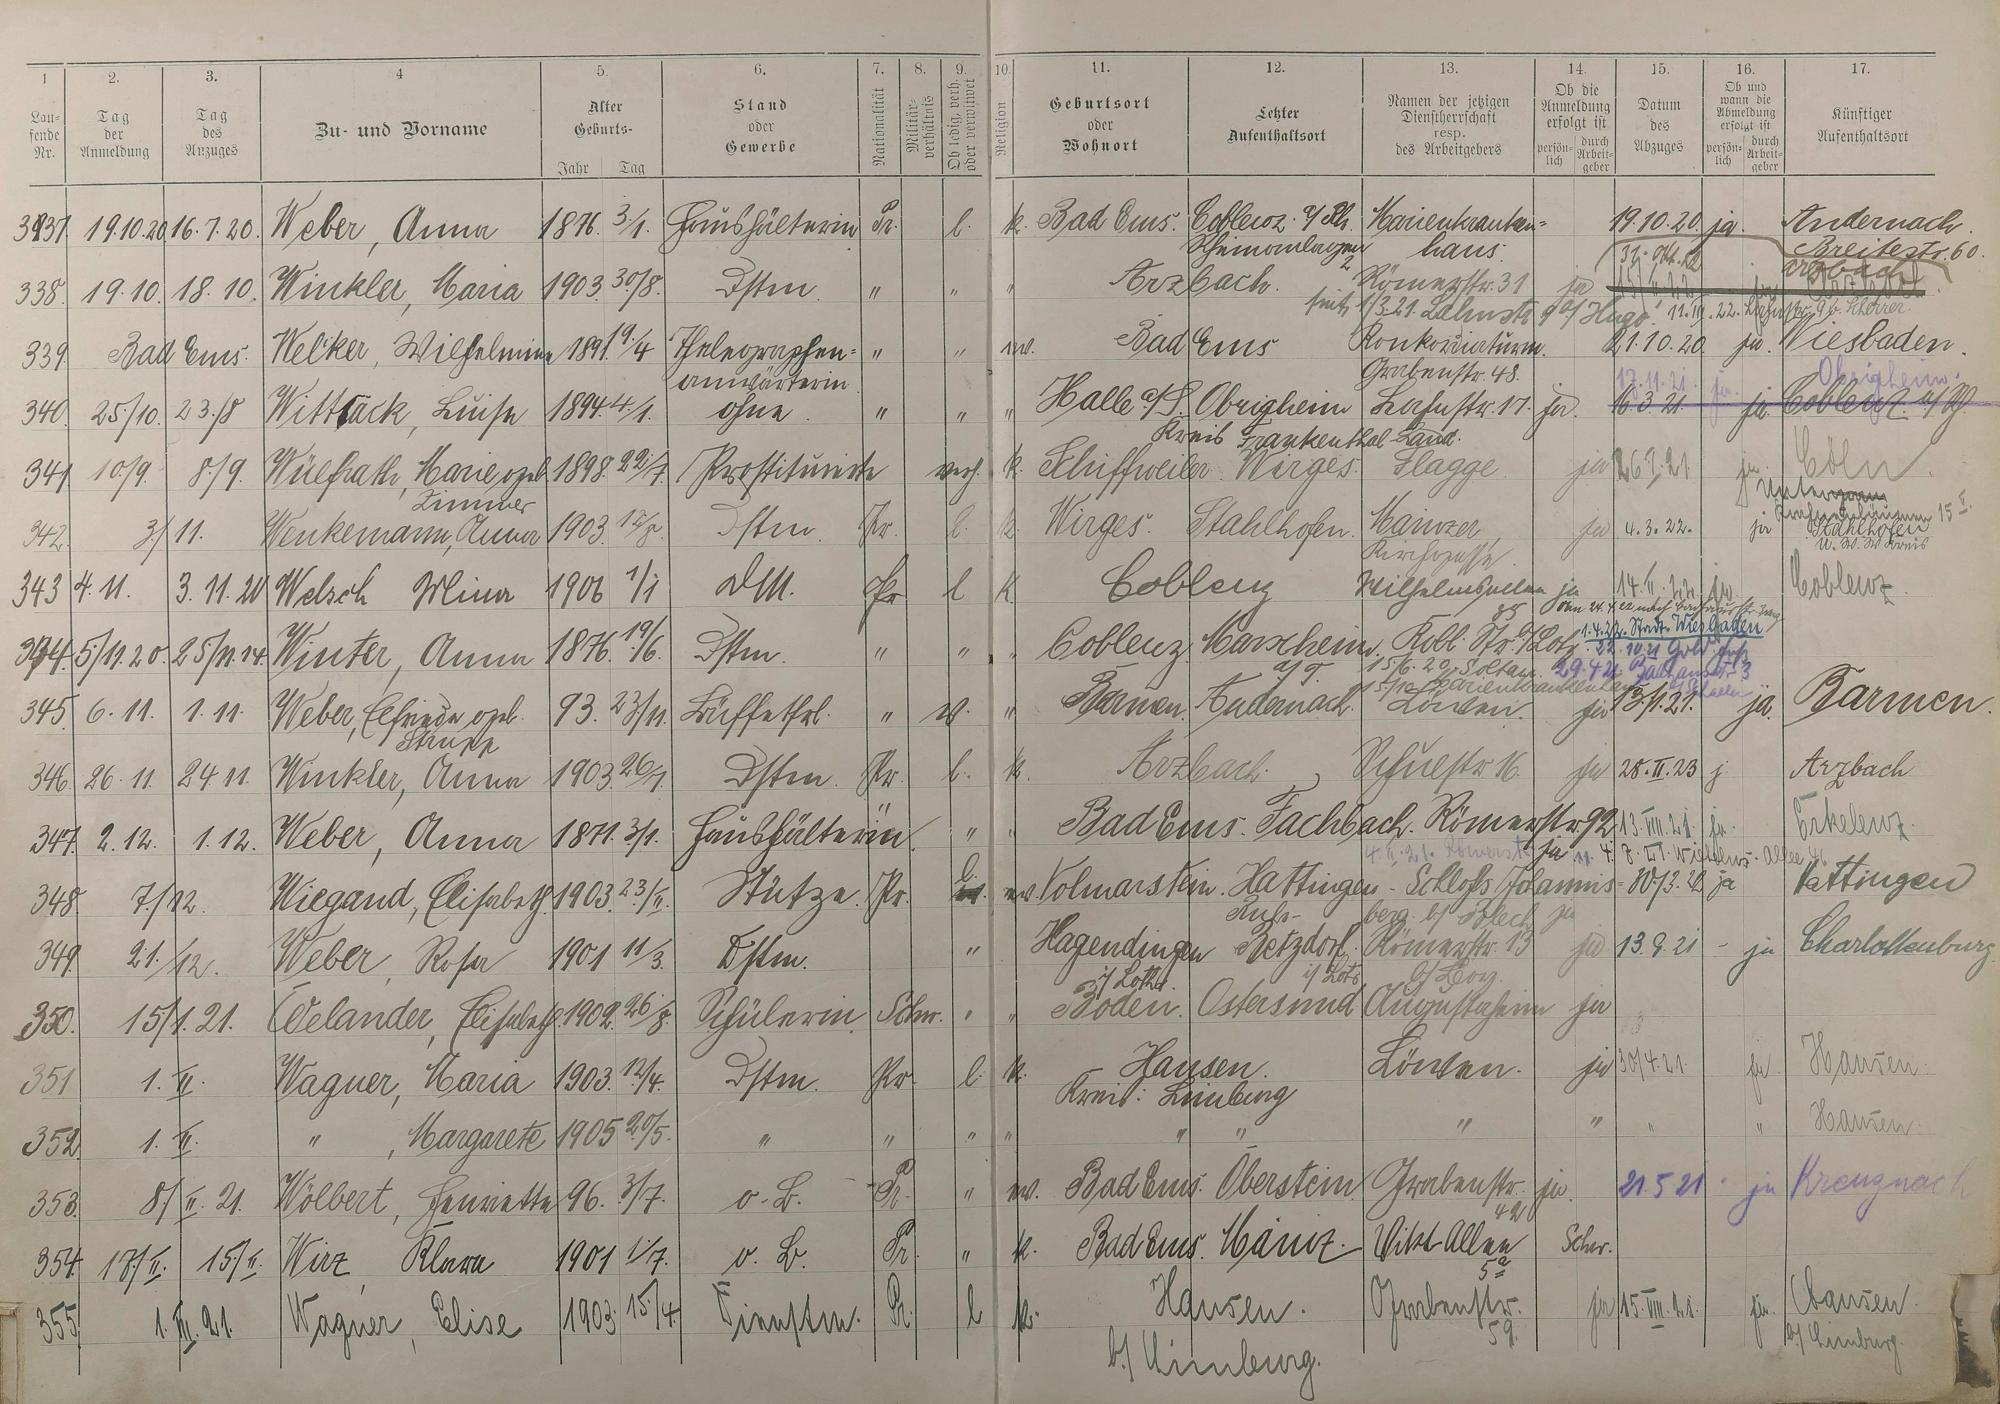 1 2. 3. 4 5. 6. 7. 8. 9. 10. 11. 12. 13. 14. 15. 16. 17.
Lau- fende Nr. Tag der Anmeldung Tag des Anzuges Zu- und Vorname Alter Geburts- Jahr Tag Stand oder Gewerbe Nationalität Militär- verhältnis Ob ledig, verh. oder verwitwet Religion Geburtsort oder Wohnort Letzter Aufenthaltsort Namen der jetzigen Dienstherrschaft resp. des Arbeitgebers Ob die Anmeldung erfolgt ist persön- lich durch Arbeit- geber Datum des Abzuges Ob und wann die Abmeldung erfolgt ist persön- lich durch Arbeit- geber Künftiger Aufenthaltsort
337 19.10.20 16.7.20. Weber, Anna 1876. 3./1. Haushälterin Pr. l. k. Bad Ems. Coblenz a/Rh. Marienkranken- 19.10.20. ja. Andernach.
Rheinanlagen 2 haus. Breitestr. 60.
338. 19.10. 18.10. Winkler, Maria 1903. 30/8. Dstm. " " " Arzbach. Römerstr. 31 ja Arzbach
seit 1/3.21. Lahnstr. 9a/ Hugo.
339 Bad Ems. Welker, Wilhelmine 1891. 19./4 Thelegraphen- " " ev. Bad Ems Konkordiaturm. 21.10.20. ja. Wiesbaden.
anwärterin Grabenstr. 48. 17.11.21. ja. Obrigheim.
340. 25/10. 23./8 Wittsack, Luise 1894. 4./1. ohne " " " Halle a/S. Obrigheim Lahnstr. 17. ja. 16.3.21. ja. Coblenz a/Rh.
Kreis Frankenthal-Land.
341 10/9. 8/9. Wülfrath, Marie, geb. 1898. 22./7. Prostituierte verh. k. Schiffweiler Wirges. Flagge ja 26.7.21 ja. Cöln.
Zimmer
342. 3/11. Wenkemann, Anna 1903. Dstm. Pr. l. k. Wirges. Stahlhofen. Mainzer ja 4.3.22. ja Stahlhofen
Kirchgasse U. W. W. Kreis
343 4.11. 3.11.20 Welsch Mina 1906 1/1 DM. Pr l k Coblenz Wilhelmsallee ja 14.II.22. ja Coblenz.
1.4.22. Stadt Wiesbaden
344. 5/11.20. 25/11.14. Winter, Anna 1876. 19./6. Dstm. " " " Coblenz. Marxheim. 22.10.21
a/T. 15/6.20. Soltau. 29.4.21.
345. 6.11. 1.11. Weber, Elfriede geb. 93. 23/11. Büffetfrl. " w. " Barmen. Andernach. Löwen. ja 13/1.21. ja. Barmen.
346. 26.11. 24.11. Winkler, Anna 1903. 26/1. Dstm. Pr. l. k. Arzbach. Schulstr. 16. ja 28.II.23 j Arzbach
347. 2.12. 1.12. Weber, Anna 1871. 3/1. Haushälterin " " " Bad Ems. Fachbach. Römerstr. 92 13.VIII.21. ja. Erkelenz.
4.II.21. Römerstr. ja
348. 7./12. Wiegand, Elisabeth 1903. 23./II. Stütze. Pr. l. ev. Volmarstein. Hattingen- Schloß Johannis- 30/3.22. ja Hattingen
Ruhr- berg. b/ Blech ja
349. 21./12. Weber, Rosa 1901 11/3. Dstm. " Hagendingen Retzdorf. Römerstr. 13 ja 13.9.21 - ja Charlottenburg
i/ Lothr. i/ Lotr
350. 15/1.21. Welander, Elisabeth. 1902. 26/8. Schülerin. Schw. " " Boden. Ostersund Augustaheim ja
351 1.II. Wagner, Maria 1903. 12./4. Dstm. Pr. l. k. Hausen. Löwen. ja 30/4.21. ja. Hausen.
Kreis: Limburg
352. 1.II. " , Margarete 1905 20/5. " " " " " " " " " " Hausen.
353. 8/II.21. Wölbert, Henriette 96. 3/7. o. B. Pr. " ev. Bad Ems. Oberstein Grabenstr. ja. 21.5.21 ja Kreuznach
42
354. 17/II. 15/II. Wirz, Klara 1901 1./7. o. B. Pr. " k. Bad Ems. Mainz. Vikt-Allee Schw.
5a
355. 1.III.21. Wagner, Elise 1903. 15./4. Dienstm. Pr. l k. Hausen. Grabenstr. ja 15.VIII.21. ja. Hausen.
b/ Limburg. 59. b/ Limburg.